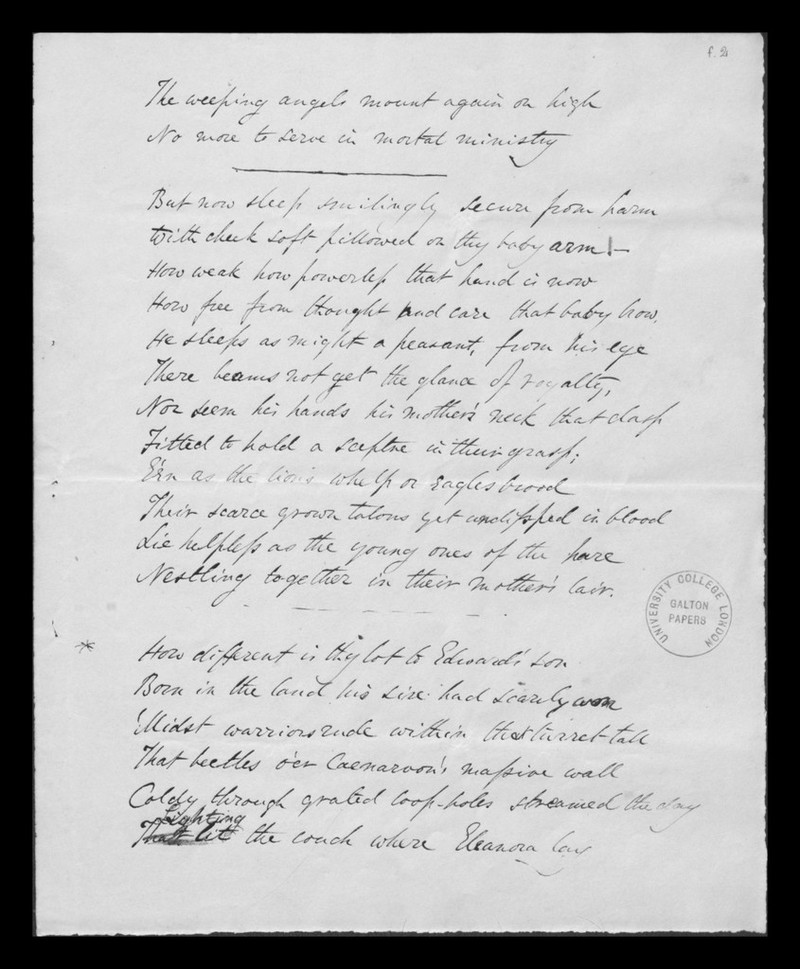 f. 2
The weeping angels mount again on high
No more to serve in mortal ministry
But now sleep smilingly secure from harm
With cheek soft pillowed on thy baby arm! –
How weak how powerless that hand is now
How free from thought and care that baby brow.
He sleeps as might a peasant, from his eye
There beams not yet the glance of royalty,
Nor seem his hands his mother's neck that clasp
Fitted to hold a sceptre in their grasp;
E'en as the lion's whelp or Eagles brood
Their scarce grown talons yet undipped in blood
Lie helpless as the young ones of the hare
Nestling together in their mother's lair.
* How different is thy lot to Edward's son
Born in the land his sire had scarcely won
'Midst warriors rude within that turret tall
That beetles o'er Caenarvon's massive wall
Coldly through grated loop-holes streamed the day
Lighting
That lit the couch where Eleanora lay
UNIVERSITY COLLEGE LONDON
GALTON
PAPERS